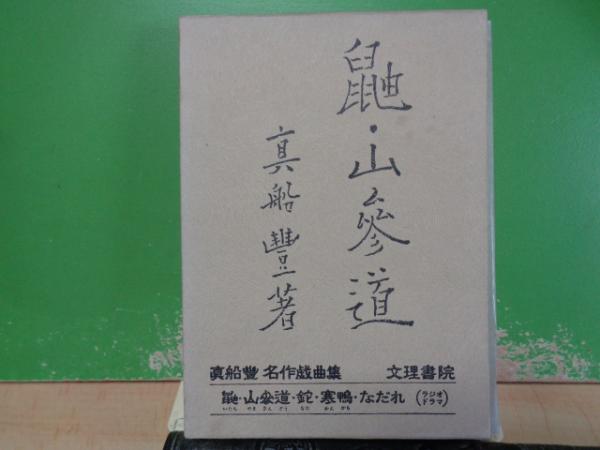 鼬・山參道
真船豐著
眞船豊 名作戯曲集 文理書院
鼬・山參道・鉈・寒鴨・なだれ（ラジオドラマ）
いたち やま さん どう なた かん がも